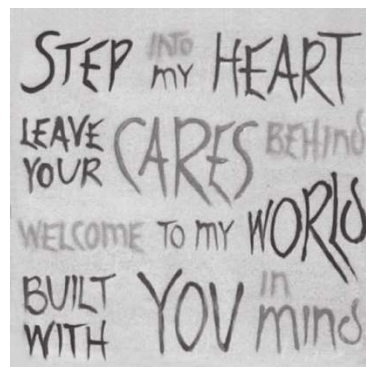 STEP INTO MY HEART
LEAVE YOUR CARES BEHIND
WELCOME TO MY WORLD
BUILT WITH YOU in mind